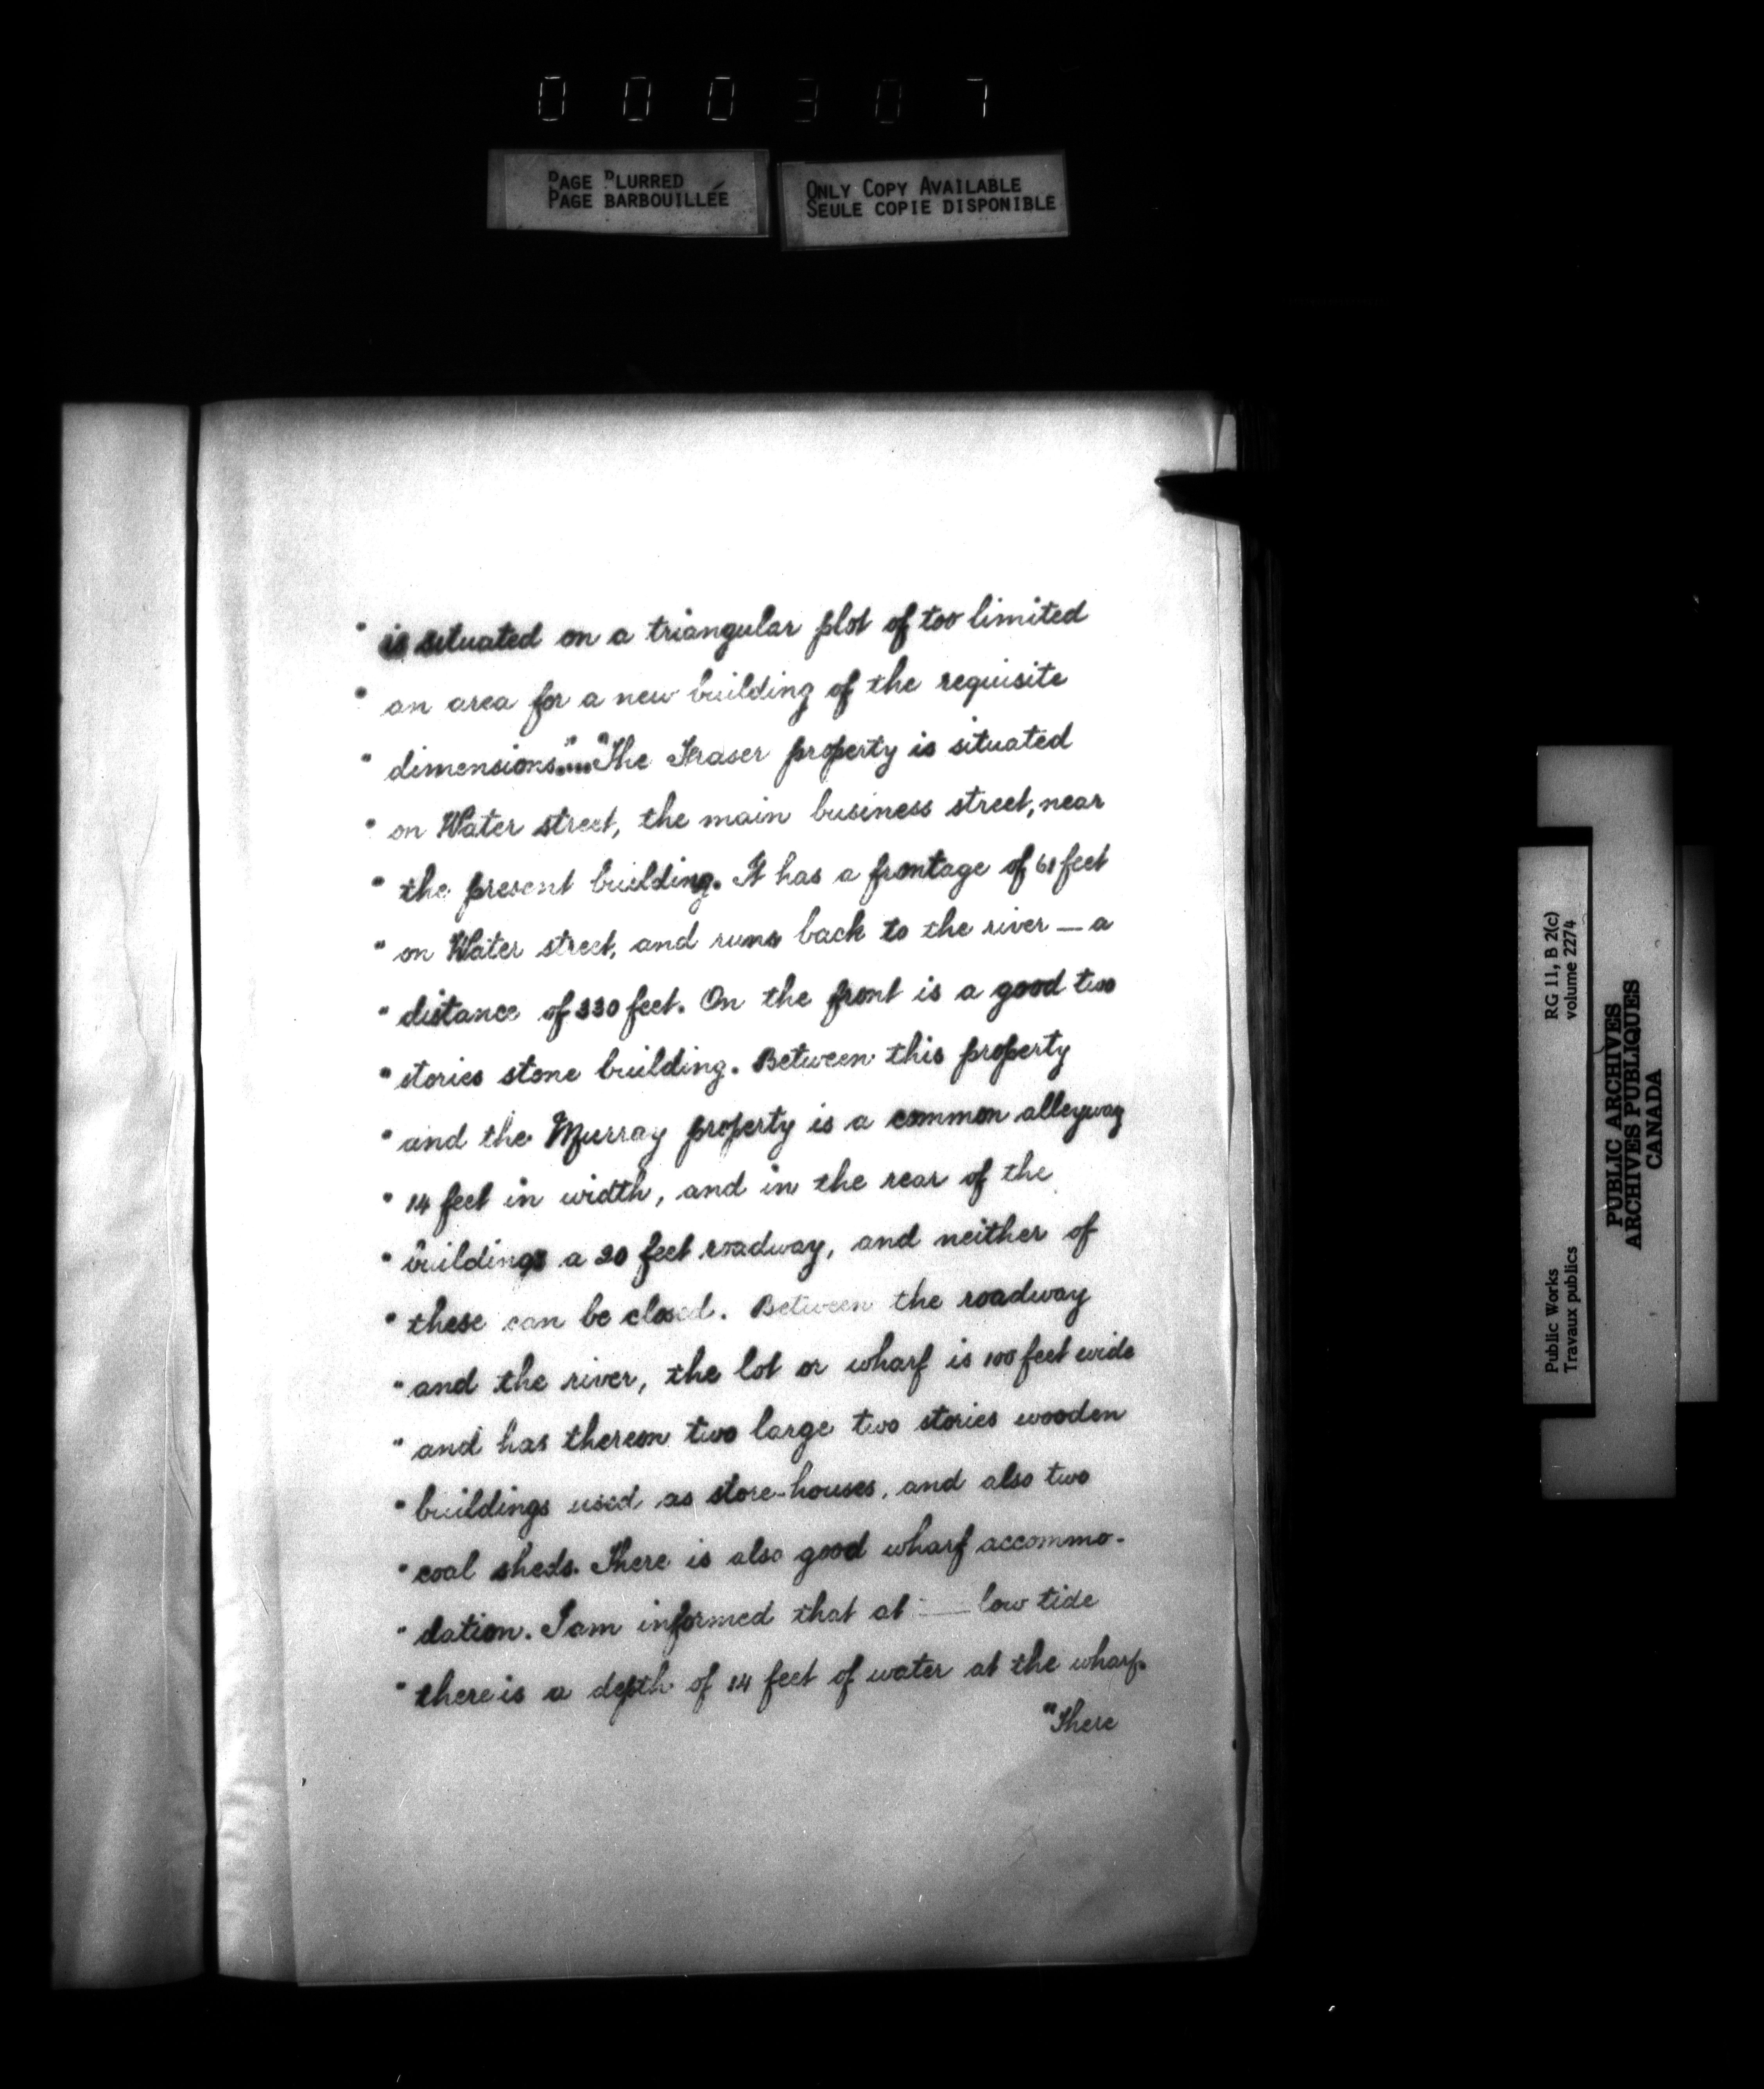 000307
PAGE BLURRED
PAGE BARBOUILLÉE
ONLY COPY AVAILABLE
SEULE COPIE DISPONIBLE
" is situated on a triangular plot of too limited
" an area for a new building of the requisite
" dimensions"...."The Fraser property is situated
" on Water street, the main business street, near
" the present building. It has a frontage of 61 feet
" on Water street, and runs back to the river — a
" distance of 330 feet. On the front is a good two
" stories stone building. Between this property
" and the Murray property is a common alleyway
" 14 feet in width, and in the rear of the
" buildings a 20 feet roadway, and neither of
" these can be closed. Between the roadway
" and the river, the lot or wharf is 100 feet wide
" and has thereon two large two stories wooden
" buildings used as store-houses, and also two
" coal sheds. There is also good wharf accommo-
" dation. I am informed that at — low tide
" there is a depth of 14 feet of water at the wharf.
"There
RG 11, B 2(c)
volume 2274
Public Works
Travaux publics
PUBLIC ARCHIVES
ARCHIVES PUBLIQUES
CANADA